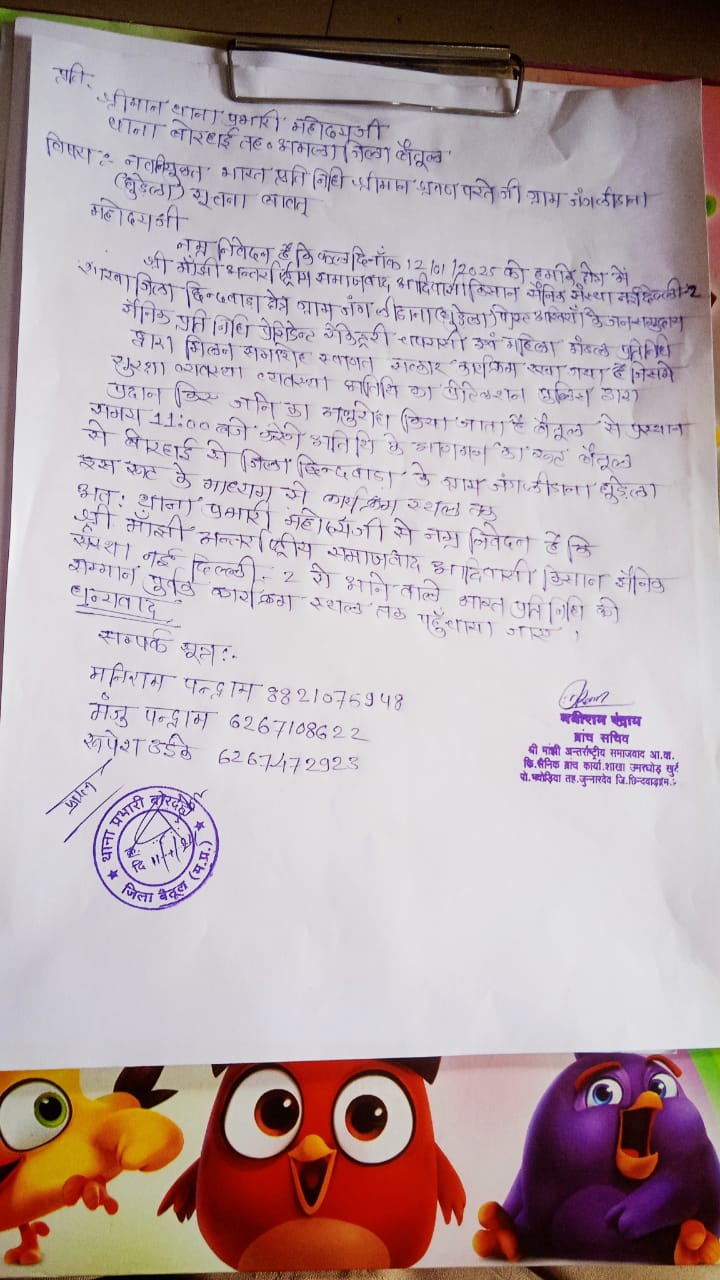 प्रति,
श्रीमान थाना प्रभारी महोदयजी
थाना बोरदेही तह॰ आमला जिला बैतूल
विषय :- नवनियुक्त भारत प्रति निधि श्रीमान श्रवण परते जी ग्राम जंगलीढाना
(घुडेला) सूचना बाबत्
महोदयजी
नम्र निवेदन है कि कल दिनाँक 12/01/2025 को हमारे क्षेत्र में
श्री माँझी अन्तर्राष्ट्रीय समाजवाद आदिवासी किसान सैनिक संस्था नई दिल्ली-2
शाखा जिला छिन्दवाडा क्षेत्र ग्राम जंगलीढाना (घुडेला) के जन समुदाय
सैनिक प्रति निधि प्रेसिडेन्ट सेक्रेटरी चपरासी एवं महिला मंडल प्रतिनिधि
द्वारा मिलन समारोह स्वागत सत्कार कार्यक्रम रखा गया है जिसमे
सुरक्षा व्यवस्था व्यवस्था अतिथि का प्रोटेक्शन पुलिस द्वारा
प्रदान किए जाने का अनुरोध किया जाता है बैतूल से प्रस्थान
समय 11:00 बजे करेंगे अतिथि के आगमन का रूट बैतूल
से बोरदेही से जिला छिन्दवाडा के ग्राम जंगलीढाना घुडेला
इस रूट के माध्यम से कार्यक्रम स्थल तक
अतः थाना प्रभारी महोदयजी से नम्र निवेदन है कि
श्री माँझी अन्तर्राष्ट्रीय समाजवाद आदिवासी किसान सैनिक
संस्था नई दिल्ली-2 से आने वाले भारत प्रति निधि को
सम्मान पुर्वक कार्यक्रम स्थल तक पहुँचाया जाए।
धन्यवाद
सम्पर्क सूत्र:-
मनिराम पन्द्राम 8821075948
मंजु पन्द्राम 6267108622
रूपेश उईके 6267472923
मनीराम पंद्राम
ब्रांच सचिव
श्री मांझी अन्तर्राष्ट्रीय समाजवाद आ.वा.
कि.सैनिक ब्रांच कार्या.शाखा उमरघोड़ खुर्द
तह.जुन्नारदेव जि.छिन्दवाड़ा
थाना प्रभारी बोरदेही
जिला बैतूल (म.प्र.)